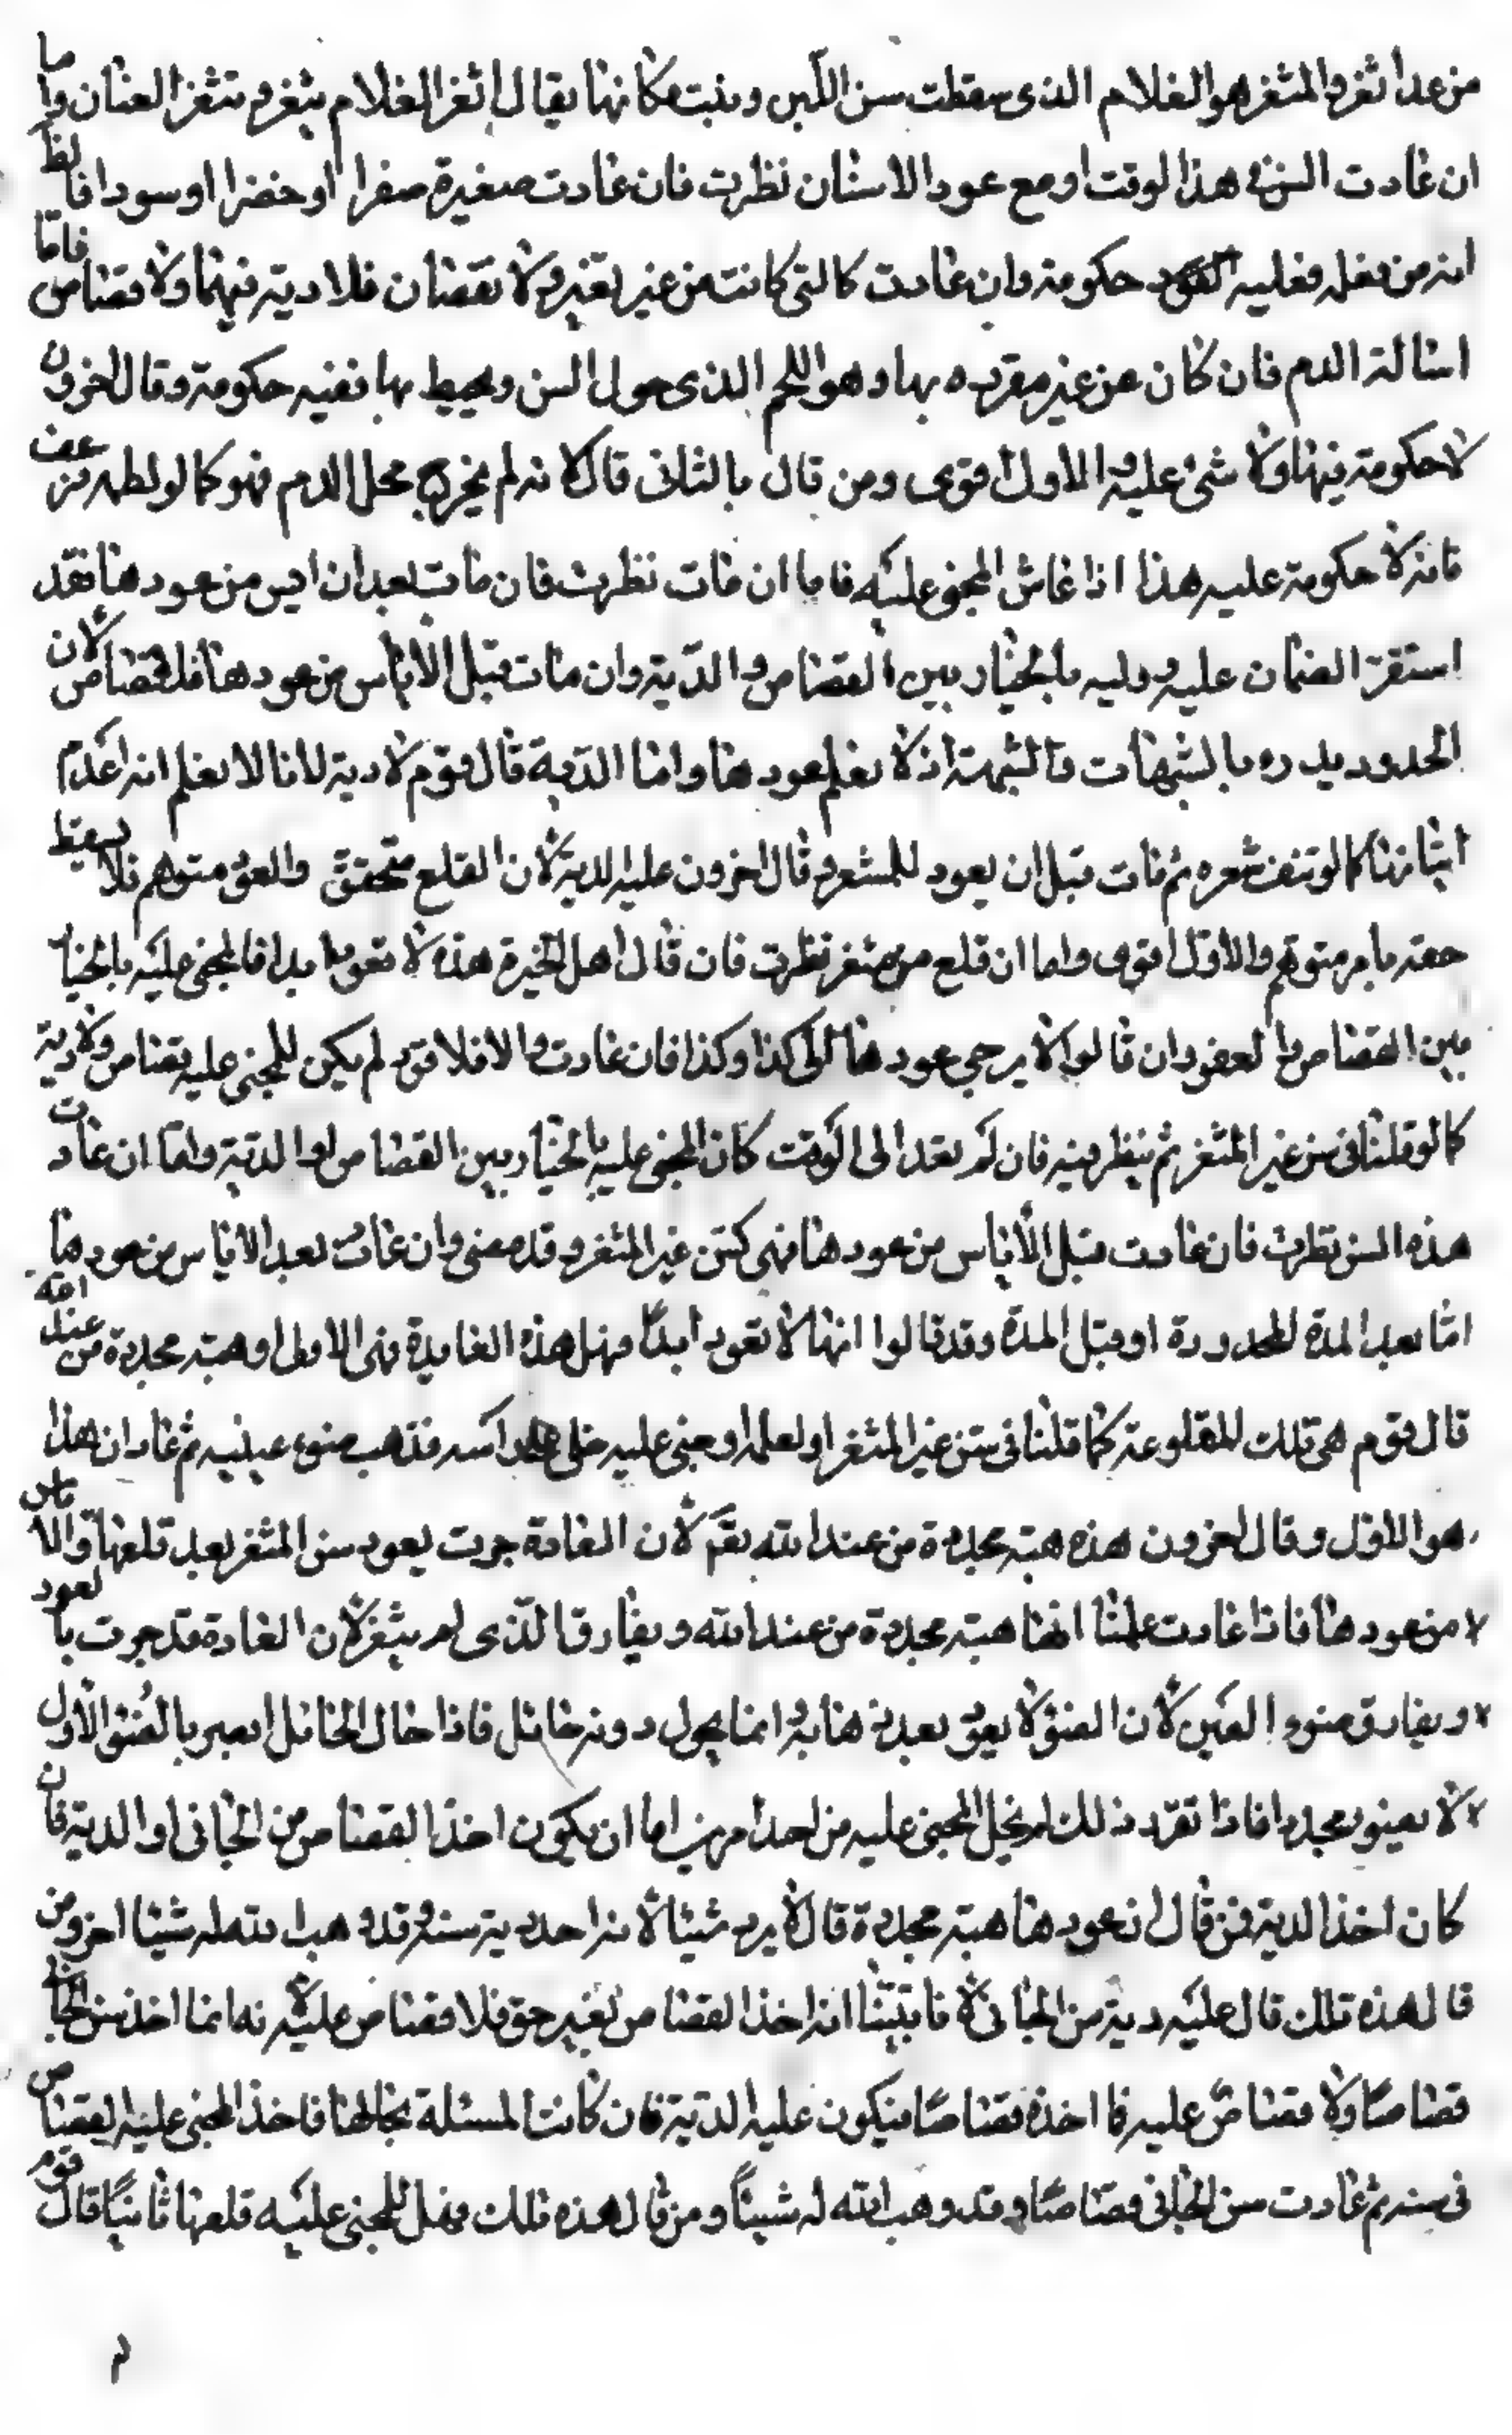 من عدا ثغر والمثغر هو الغلام الذى سقطت سن اللبن ونبت مكانها يقال اثغر الغلام يثغر ويتثغر العتان واما
ان عادت السن فى هذا لوقت او مع عود الاسنان نظرت فان عادت صغيرة صفرا او خضرا او سودا فالظ
انه من فعله فعليه حكومة وان عادت كالتى كانت من غير تغير ولا نقصان فلا دية فيهما ولا قصاص فامّا
اسالة الدم فان كان عن غير مقرده بها وهو اللحم الذى حول السن ومحيط بها ففيه حكومة وقال اخرون
لا حكومة فيها ولا شئ عليه والاول اقوى ومن قال بالثانى قال لانه لم يخرج محل الدم فهو كما لو لطمه فرعف
فانه لا حكومة عليه هذا اذا عاش المجنى عليه فاما ان مات نظرت فان مات بعد ان ايس من عودها فقد
استقرّ الضمان عليه ووليه بالخيار بين القصاص والدّية وان مات قبل الأياس من عودها فلا قصاص لأن
الحدود يدره بالشبهات والشبهة اذ لا نعلم عودها واما الدية قال قوم لا دية لانا لا نعلم انه اعدم
اثباتها كما لو نتف شعره ثم مات قبل ان يعود للمشعر وقال اخرون عليه الدية لان القلع متحقق والعود متوهم فلا يسقط
حقه بامر متوهّم والاول اقوى واما ان قلع سن مثغر نظرت فان قال اهل الخبرة هذه لا تعود ابدا فالمجنى عليه بالخيار
بين القصاص والعفو وان قالوا لا يرجى عودها الى كذا وكذا فان عادت والا فلا قود لم يكن للمجنى عليه قصاص ولا دية
كما لو قلنا فى سن غير المثغر ثم ينظر فيه فان لم تعد الى الوقت كان المجنى عليه بالخيار بين القصاص او الدّية وامّا ان عادت
هذه السن نظرت فان عادت قبل الأياس من عودها فهى كسن غير المثغر وقد مضى وان عادت بعد الاياس من عودها
امّا بعد المدة المحدودة او قبل المدة وقد قالوا انها لا تعود ابدًا فهل هذه العايدة فهى الاولى او هبة مجددة من عند الله
قال قوم هى تلك المقلوعة كما قلنا فى سن غير المثغر او لطمه او جنى عليه على راسه فذهب ضوء عينيه ثم عاد ان هذا
هو الاول وقال اخرون هذه هبة مجددة من عند الله تعم لأن العادة جرت يعود سن المثغر بعد قلعها والاياس
من عودها فاذا عادت علمنا انّها هبة مجددة من عند الله ويفارق الّذى لم يثغر لان العادة قد جرت بالعود
ويفارق ضوء العين لأن الضوء لا يعود بعد ذهابه وانما يحول دونه حائل فاذا حال الحائل ابصر بالضوء الأول
لا بضوء مجدد فاذا تقرّر ذلك لم يخل المجنى عليه من احد امرين اما ان يكون اخذ القصاص من الجانى او الدية فان
كان اخذ الدية فمن قال ان عودها هبة مجددة قال لا يرد شيئا لانه اخذ دية سنه وقد وهب الله له شيئا اخر ومن
قال هذه تلك قال عليه دية سن الجانى لانا تبيّنا انه اخذ القصاص بغير حق فلا قصاص عليه لأنه انما اخذ سن الجانى
قصاصًا ولا قصاص عليه فيما اخذه قصاصًا فيكون عليه الدّية فان كانت المسئلة بحالها فاخذ المجنى عليه القصاص
فى سنه ثم عادت سن الجانى قصاصًا وقد وهب الله له شيئاً ومن قال هذه تلك فهل للمجنى عليه قلعها ثانيًا قال قوم